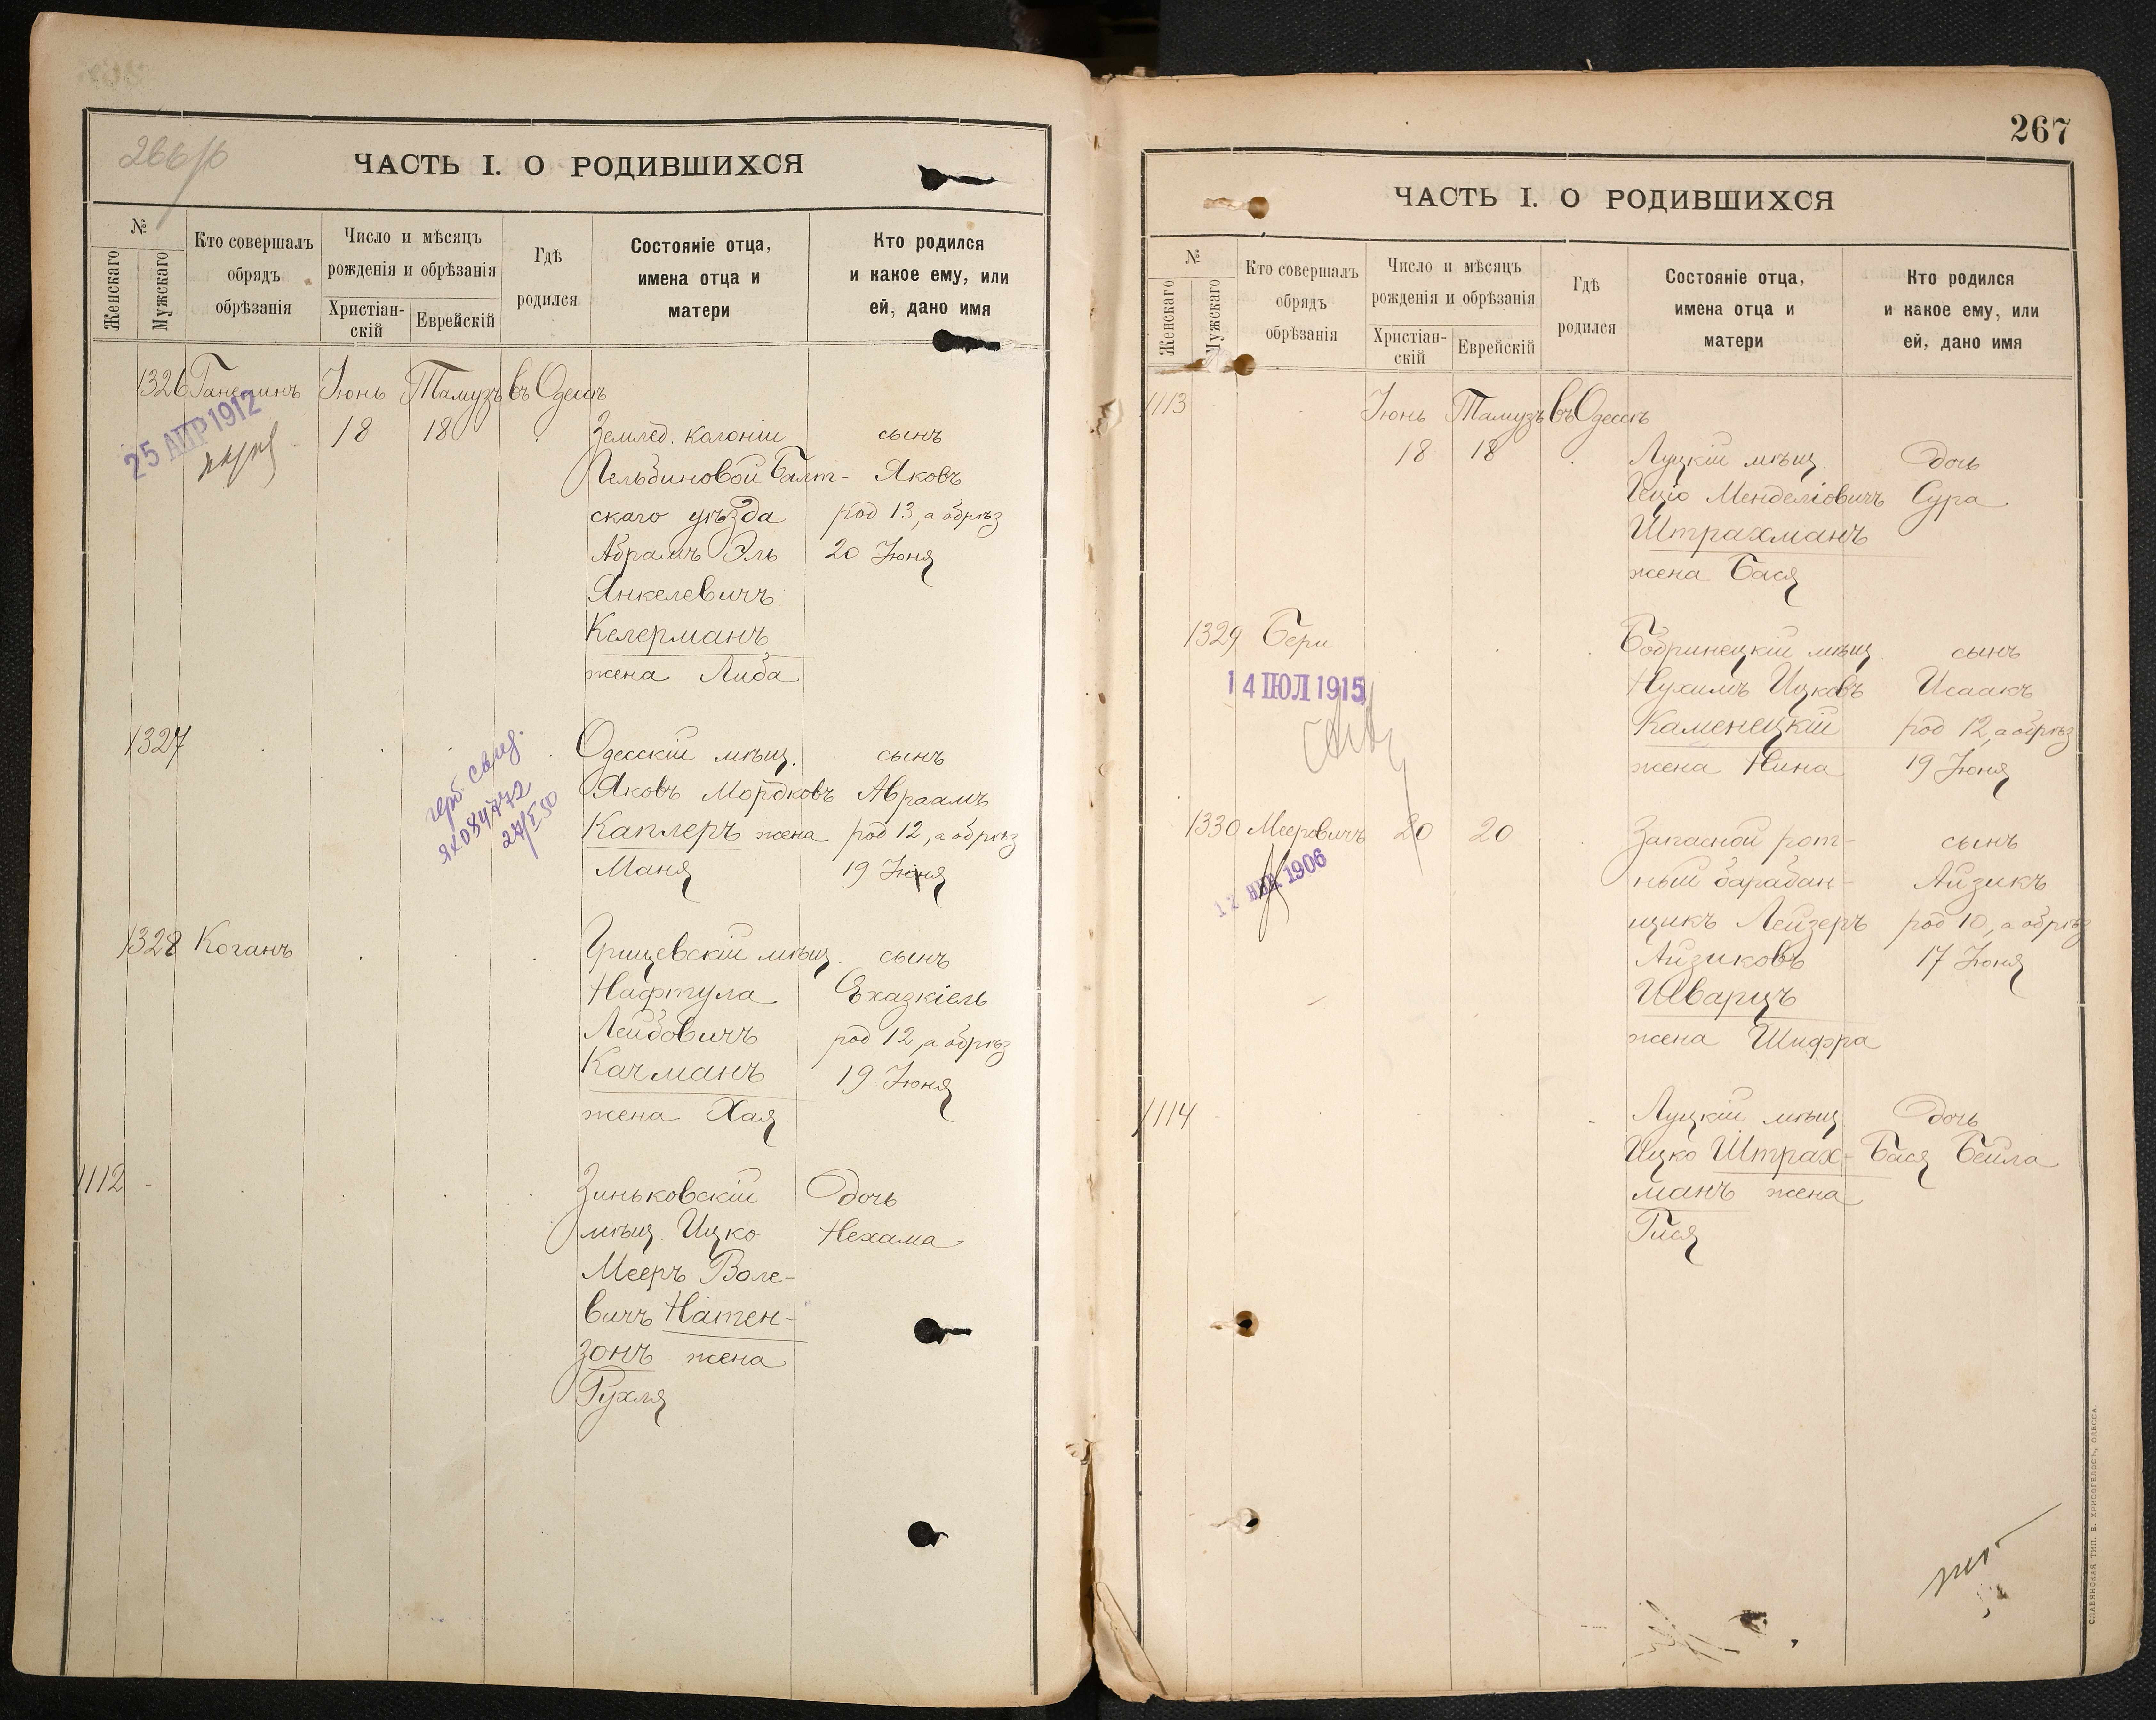 266/б
ЧАСТЬ I. О РОДИВШИХСЯ
№
Женскаго
Мужскаго
Кто совершалъ
обрядъ
обрѣзанія
Число и мѣсяцъ
рожденія и обрѣзанія
Христіан-
скій
Еврейскій
Гдѣ
родился
Состояніе отца,
имена отца и
матери
Кто родился
и какое ему, или
ей, дано имя
1326 Іюнь Тамузъ въ Одессѣ
25 АПР 1912
18 18 Землед. колоніи сынъ
Балт- Яковъ
скаго уѣзда род 13, а обрѣз
Абрамъ Эль 20 Іюня
Янкелевичъ
Келерманъ
жена Либа
1327 Одесскій мѣщ. сынъ
Яковъ Мордковъ Авраамъ
Каплеръ жена род 12, а обрѣз
Маня 19 Іюня
герб. свид.
ЯХ 084772
27/I 50
1328 Коганъ Грицевскій мѣщ. сынъ
Нафтула Ехазкіель
Лейбовичъ род 12, а обрѣз
Качманъ 19 Іюня
жена Хая
1112 Зиньковскій дочь
мѣщ. Ицко Нехама
Мееръ Воле-
вичъ Натен-
зонъ жена
Рухля
267
ЧАСТЬ I. О РОДИВШИХСЯ
№
Женскаго
Мужскаго
Кто совершалъ
обрядъ
обрѣзанія
Число и мѣсяцъ
рожденія и обрѣзанія
Христіан-
скій
Еврейскій
Гдѣ
родился
Состояніе отца,
имена отца и
матери
Кто родился
и какое ему, или
ей, дано имя
1113 Іюнь Тамузъ въ Одессѣ
18 18 Луцкій мѣщ. дочь
Менделіовичъ Сура
Штрахманъ
жена Бася
1329 Бери Бобринецкій мѣщ. сынъ
14 ІЮЛ 1915
Нухимъ Ицковъ Исаакъ
Каменецкій род 12, а обрѣз
жена Нина 19 Іюня
1330 Мееровичъ 20 20 Запасной рот- сынъ
12 ЯНВ 1906
ный барабан- Айзикъ
щикъ Лейзеръ род 10, а обрѣз
Айзиковъ 17 Іюня
Шварцъ
жена Шифра
1114 Луцкій мѣщ дочь
Ицко Штрах- Бася Бейла
манъ жена
Гися
СЛАВЯНСКАЯ ТИП. Е. ХРИСОГЕЛОСЪ, ОДЕССА.